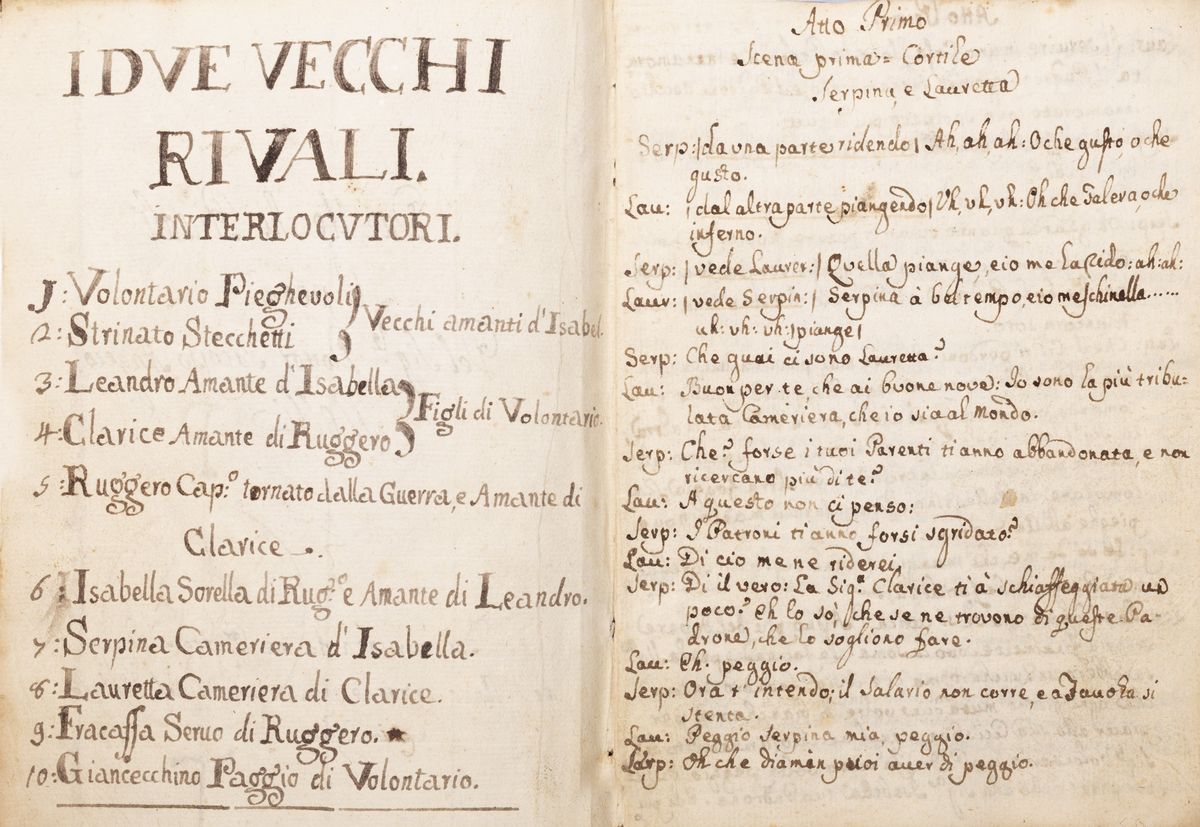 I DVE VECCHI
RIVALI.
INTERLOCVTORI.
J: Volontario Pieghevoli
2: Strinato Stecchetti
Vecchi amanti d'Isabel.
3: Leandro Amante d'Isabella
4: Clarice Amante di Ruggero
Figli di Volontario.
5: Ruggero Cap.º tornato dalla Guerra, e Amante di
Clarice.
6: Isabella Sorella di Rug.º e Amante di Leandro.
7: Serpina Cameriera d'Isabella.
8: Lauretta Cameriera di Clarice.
9: Fracassa Seruo di Ruggero.
10: Giancecchino Paggio di Volontario.
Atto Primo
Scena prima = Cortile
Serpina, e Lauretta
Serp: | da una parte ridendo | Ah, ah, ah: O che gusto, o che
gusto.
Lau: | dal altra parte piangendo | Uh, uh, uh: Oh che Galera, o che
inferno.
Serp: | vede Laurer: | Quella piange, e io me la rido: ah: ah:
Laur: | vede Serpin: | Serpina à bel tempo, e io meschinella......
uh: uh: uh: | piange |
Serp: Che guai ci sono Lauretta?
Lau: Buon per te, che ai buone nove: Io sono la più tribu-
lata Cameriera, che io sia al mondo.
Serp: Che? forse i tuoi Parenti ti anno abbandonata, e non
ricercano più di te?
Lau: A questo non ci penso:
Serp: I Patroni ti anno forsi sgridato?
Lau: Di cio me ne riderei,
Serp: Di il vero: La Sig.ª Clarice ti à schiaffeggiata un
poco? Eh lo sò, che se ne trovono di queste Pa-
drone, che lo sogliono fare.
Lau: Eh. peggio.
Serp: Ora t'intendo; il salario non corre, e a Tavola si
stenta.
Lau: Peggio Serpina mia, peggio.
Serp: Oh che diamin puoi aver di peggio.